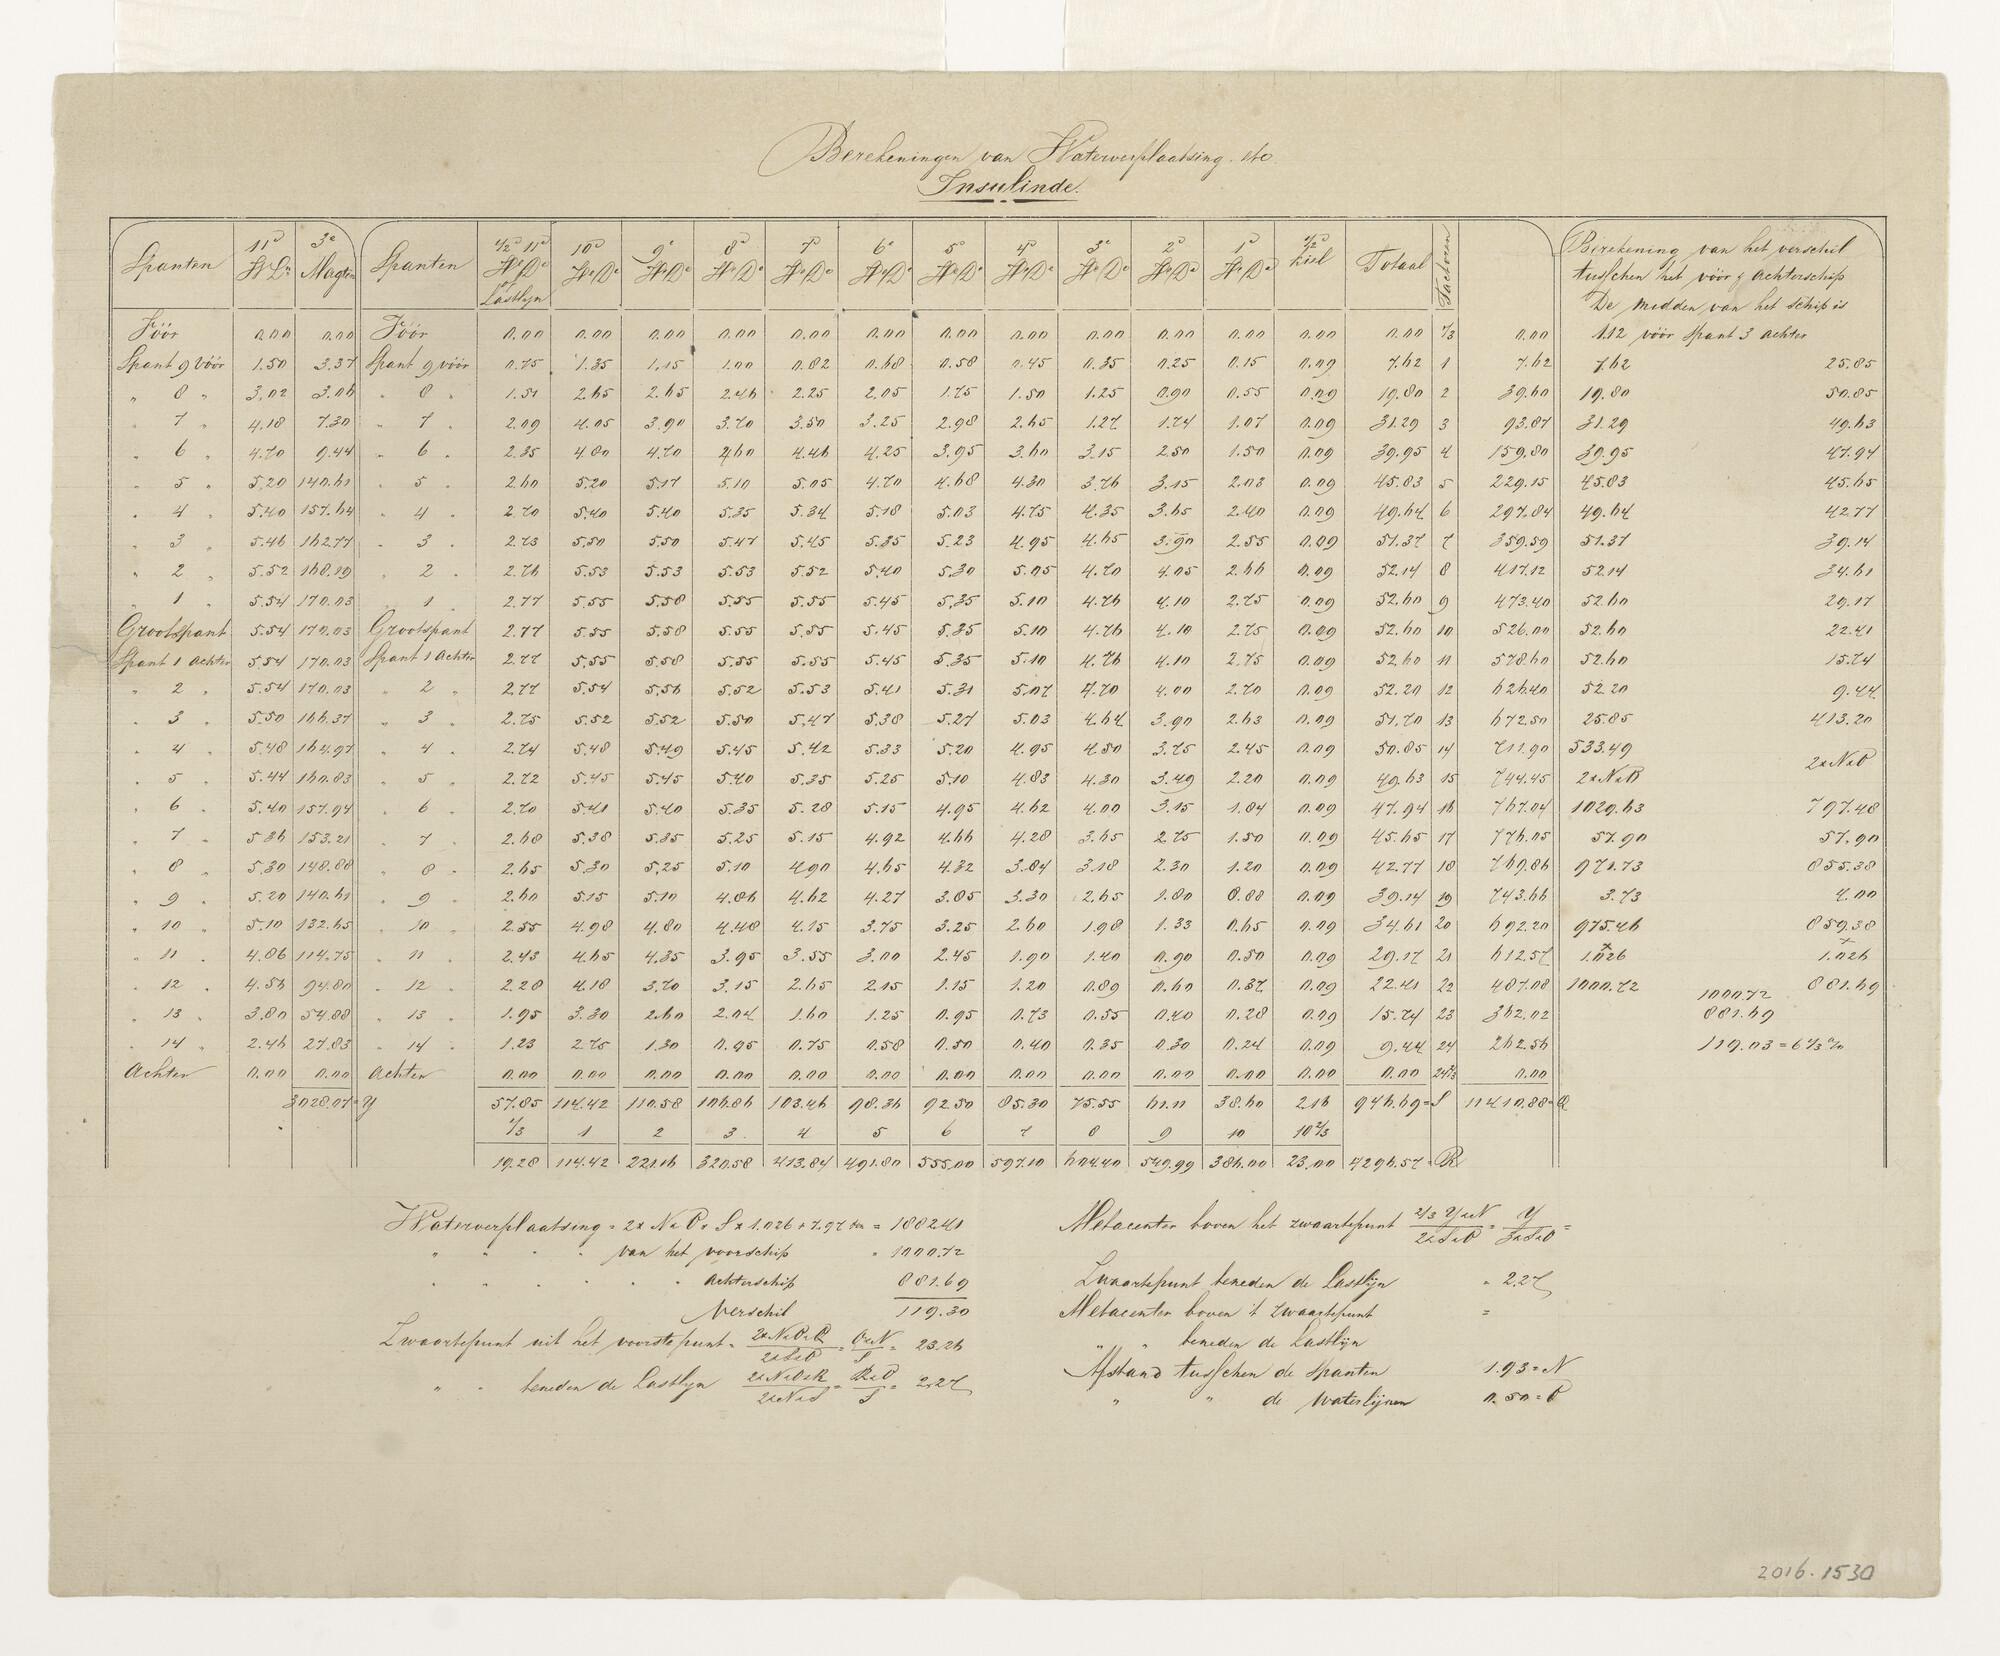 Berekeningen van Waterverplaatsing. etc.
Insulinde.
Spanten | 11e W.Ln | 3e Magten | Spanten | 1/2e 11e We/De of Lastlyn | 10e We/De | 9e We/De | 8e We/De | 7e We/De | 6e We/De | 5e We/De | 4e We/De | 3e We/De | 2e We/De | 1e We/De | 1/2e kiel | Totaal | Factoren | | Berekening van het verschil
tusschen het vóór & achterschip
De midden van het schip is
Vóór 0.00 0.00 Vóór 0.00 0.00 0.00 0.00 0.00 0.00 0.00 0.00 0.00 0.00 0.00 0.00 0.00 1/3 0.00 1.12 vóór spant 3 achter
Spant 9 vóór 1.50 3.37 Spant 9 vóór 0.75 1.35 1.15 1.00 0.82 0.68 0.58 0.45 0.35 0.25 0.15 0.09 7.62 1 7.62 7.62 25.85
„ 8 „ 3.02 3.06 „ 8 „ 1.51 2.65 2.65 2.46 2.25 2.05 1.75 1.50 1.25 0.90 0.55 0.09 19.80 2 39.60 19.80 50.85
„ 7 „ 4.18 7.30 „ 7 „ 2.09 4.05 3.90 3.70 3.50 3.25 2.98 2.65 1.27 1.74 1.07 0.09 31.29 3 93.87 31.29 49.63
„ 6 „ 4.70 9.44 „ 6 „ 2.35 4.80 4.70 4.60 4.46 4.25 3.95 3.60 3.15 2.50 1.50 0.09 39.95 4 159.80 39.95 47.94
„ 5 „ 5.20 140.61 „ 5 „ 2.60 5.20 5.17 5.10 5.05 4.70 4.68 4.30 3.76 3.15 2.03 0.09 45.83 5 229.15 45.83 45.65
„ 4 „ 5.40 157.64 „ 4 „ 2.70 5.40 5.40 5.35 5.34 5.18 5.03 4.75 4.35 3.65 2.40 0.09 49.64 6 297.84 49.64 42.77
„ 3 „ 5.46 162.77 „ 3 „ 2.73 5.50 5.50 5.47 5.45 5.35 5.23 4.95 4.65 3.90 2.55 0.09 51.37 7 359.59 51.37 39.14
„ 2 „ 5.52 168.19 „ 2 „ 2.76 5.53 5.53 5.53 5.52 5.40 5.30 5.05 4.70 4.05 2.66 0.09 52.14 8 417.12 52.14 34.61
„ 1 „ 5.54 170.03 „ 1 „ 2.77 5.55 5.58 5.55 5.55 5.45 5.35 5.10 4.76 4.10 2.75 0.09 52.60 9 473.40 52.60 29.17
Grootspant 5.54 170.03 Grootspant 2.77 5.55 5.58 5.55 5.55 5.45 5.35 5.10 4.76 4.10 2.75 0.09 52.60 10 526.00 52.60 22.41
Spant 1 achter 5.54 170.03 Spant 1 achter 2.77 5.55 5.58 5.55 5.55 5.45 5.35 5.10 4.76 4.10 2.75 0.09 52.60 11 578.60 52.60 15.74
„ 2 „ 5.54 170.03 „ 2 „ 2.77 5.54 5.56 5.52 5.53 5.41 5.31 5.07 4.70 4.00 2.70 0.09 52.20 12 626.40 52.20 9.44
„ 3 „ 5.50 166.37 „ 3 „ 2.75 5.52 5.52 5.50 5.47 5.38 5.27 5.03 4.64 3.90 2.63 0.09 51.70 13 672.50 25.85 413.20
„ 4 „ 5.48 164.97 „ 4 „ 2.74 5.48 5.49 5.45 5.42 5.33 5.20 4.95 4.50 3.75 2.45 0.09 50.85 14 711.90 533.49
2xNxP
„ 5 „ 5.44 160.83 „ 5 „ 2.72 5.45 5.45 5.40 5.35 5.25 5.10 4.83 4.30 3.49 2.20 0.09 49.63 15 744.45 2xNxP
„ 6 „ 5.40 157.94 „ 6 „ 2.70 5.41 5.40 5.35 5.28 5.15 4.95 4.62 4.00 3.15 1.84 0.09 47.94 16 767.04 1029.63 797.48
„ 7 „ 5.36 153.21 „ 7 „ 2.68 5.38 5.35 5.25 5.15 4.92 4.66 4.28 3.65 2.75 1.50 0.09 45.65 17 776.05 57.90 57.90
„ 8 „ 5.30 148.88 „ 8 „ 2.65 5.30 5.25 5.10 4.90 4.65 4.32 3.84 3.18 2.30 1.20 0.09 42.77 18 769.86 971.73 855.38
„ 9 „ 5.20 140.61 „ 9 „ 2.60 5.15 5.10 4.86 4.62 4.27 3.85 3.30 2.65 1.80 0.88 0.09 39.14 19 743.66 3.73 4.00
„ 10 „ 5.10 132.65 „ 10 „ 2.55 4.98 4.80 4.48 4.15 3.75 3.25 2.60 1.98 1.33 0.65 0.09 34.61 20 692.20 975.46 859.38
„ 11 „ 4.86 114.75 „ 11 „ 2.43 4.65 4.35 3.95 3.55 3.00 2.45 1.90 1.40 0.90 0.50 0.09 29.17 21 612.57 x 1.026 x 1.026
„ 12 „ 4.56 94.80 „ 12 „ 2.28 4.18 3.70 3.15 2.65 2.15 1.15 1.20 0.89 0.60 0.37 0.09 22.41 22 487.08 1000.72 1000.72 881.69
„ 13 „ 3.80 54.88 „ 13 „ 1.95 3.30 2.60 2.04 1.60 1.25 0.95 0.73 0.55 0.40 0.28 0.09 15.74 23 362.02 881.69
„ 14 „ 2.46 27.83 „ 14 „ 1.23 2.75 1.30 0.95 0.75 0.58 0.50 0.40 0.35 0.30 0.24 0.09 9.44 24 262.56 119.03 = 6 2/3 %
Achter 0.00 0.00 Achter 0.00 0.00 0.00 0.00 0.00 0.00 0.00 0.00 0.00 0.00 0.00 0.00 0.00 24 2/3 0.00
3028.07 = Y 57.85 114.42 110.58 106.86 103.46 98.36 92.50 85.30 75.55 61.11 38.60 2.16 946.69 = S 11410.88 = Q
1/3 1 2 3 4 5 6 7 8 9 10 10 2/3
19.28 114.42 221.16 320.58 413.84 491.80 555.00 597.10 604.40 549.99 386.00 23.00 4296.57 = R
Waterverplaatsing = 2x NxPx S x 1.026 + 7.97 ton = 188241
„ „ „ „ van het voorschip „ 1000.72
„ „ „ „ „ „ achterschip 881.69
Verschil 119.30
Zwaartepunt uit het voorste punt = 2xNxPxQ / 2xSxP = QxN / S = 23.26
„ „ beneden de Lastlyn 2xNxPxR / 2xNxS = RxP / S = 2.27
Metacenter boven het zwaartepunt 2/3 YxN / 2xSxP = Y / 3xSxP =
Zwaartepunt beneden de Lastlyn „ 2.27
Metacenter boven 't zwaartepunt =
„ „ beneden de Lastlyn
Afstand tusschen de spanten 1.93 = N
„ „ de waterlijnen 0.50 = P
2016.1530